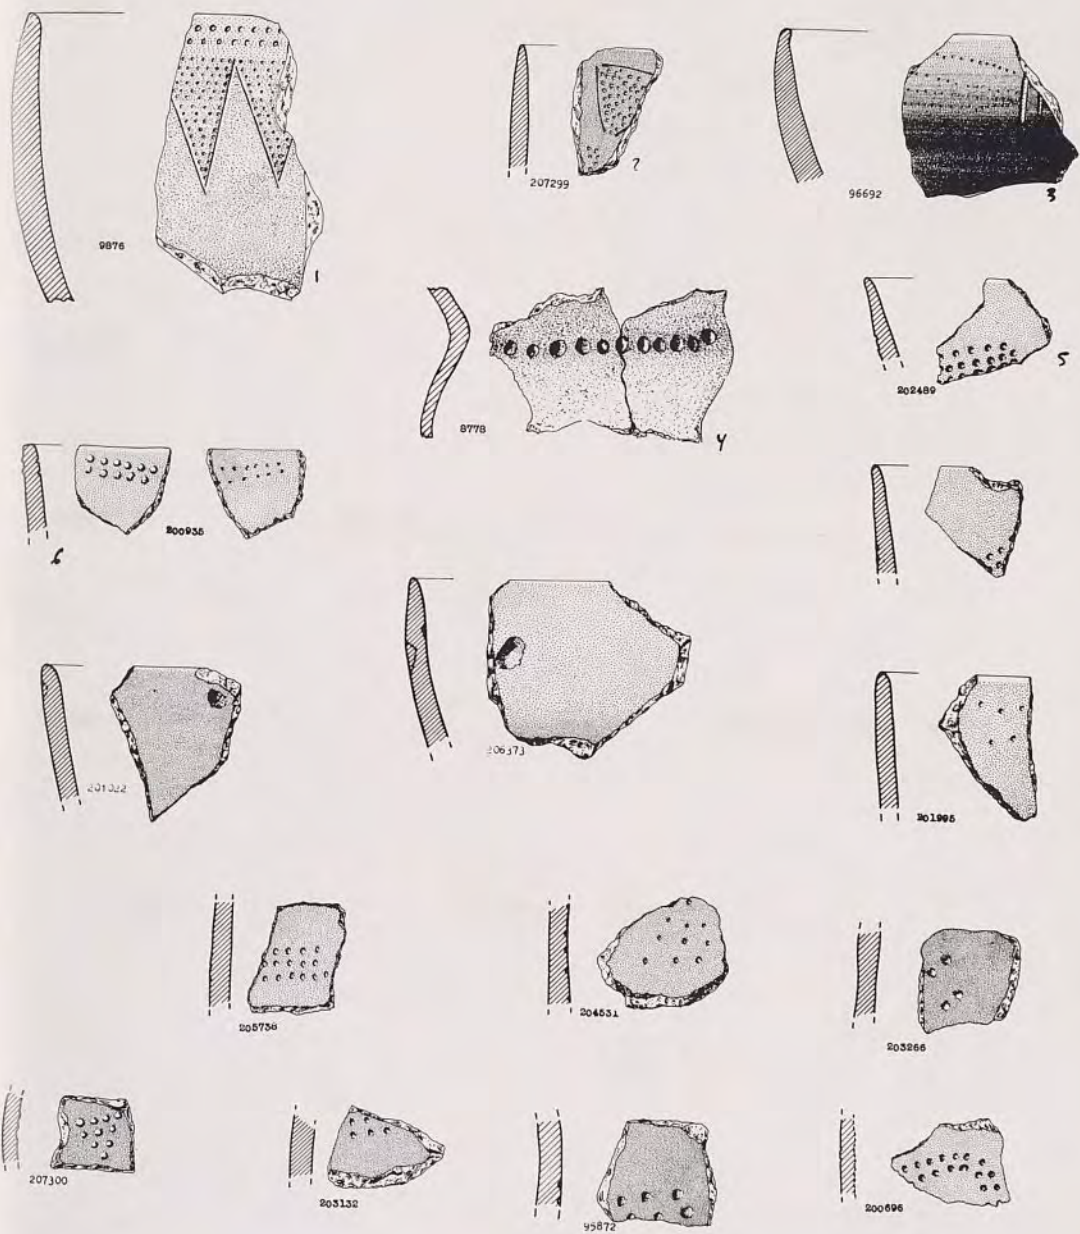 9876
1
207299
?
96692
3
8778
4
202489
5
200935
6
206373
201022
201995
205736
204531
203266
207300
203132
95872
200696